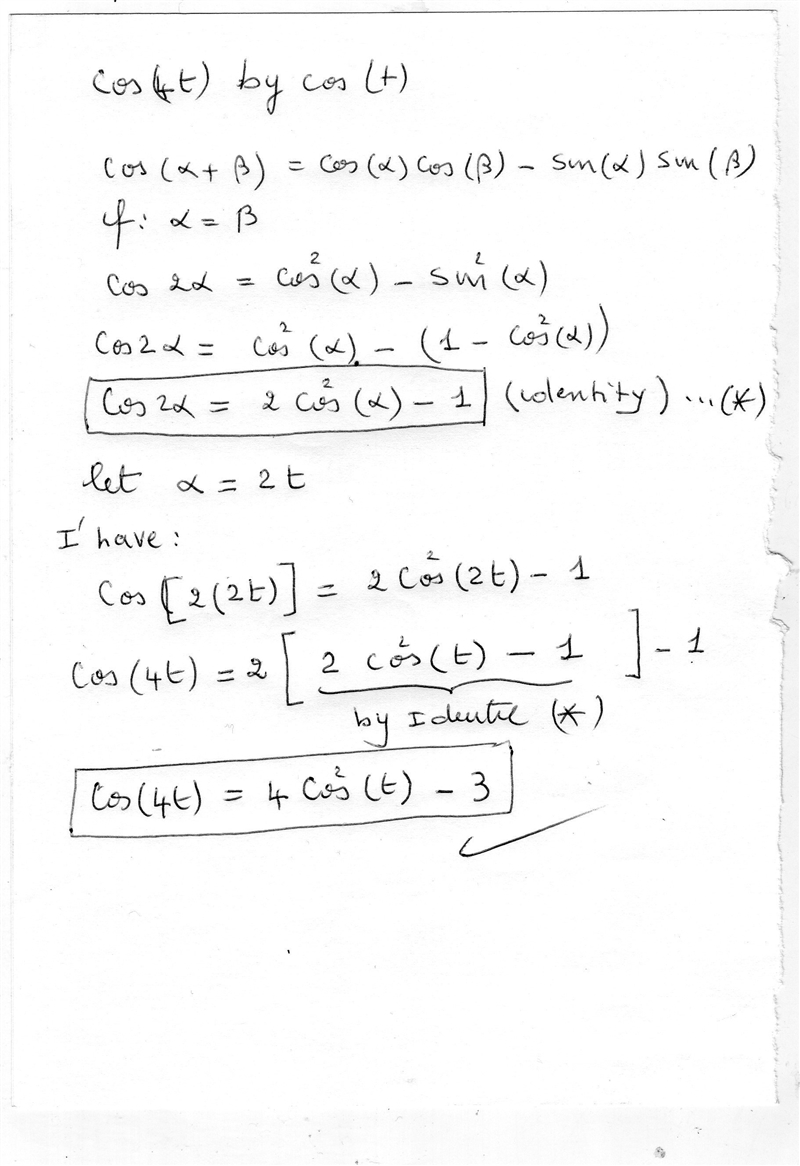 Cos(4t) by cos(t)
Cos(α+β) = Cos(α)Cos(β) - Sin(α)Sin(β)
if: α = β
Cos 2α = Cos²(α) - Sin²(α)
Cos2α = Cos²(α) - (1 - Cos²(α))
Cos 2α = 2 Cos²(α) - 1 (identity) ...(*)
let α = 2t
I' have:
Cos[2(2t)] = 2 Cos²(2t) - 1
Cos(4t) = 2[2 cos²(t) - 1] - 1
by (*)
Cos(4t) = 4 Cos²(t) - 3